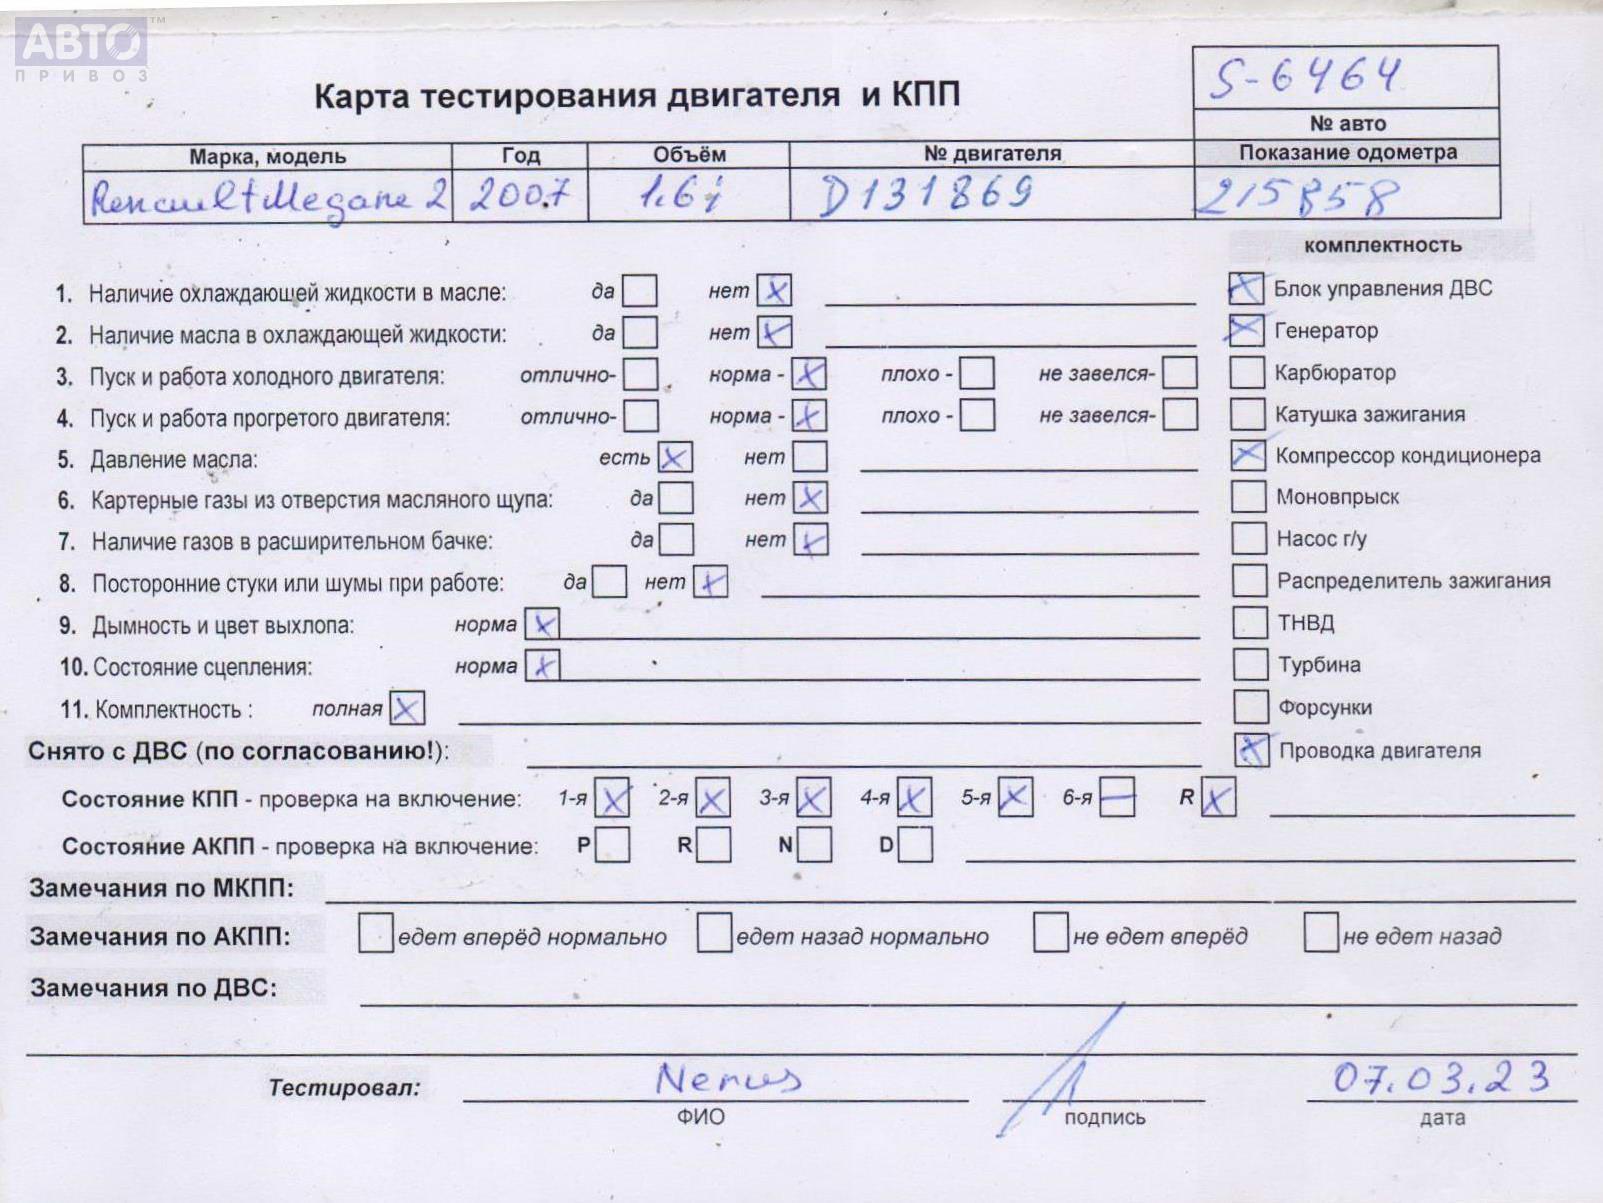 АВТО™
ПРИВОЗ
S-6464
Карта тестирования двигателя и КПП
№ авто
Марка, модель Год Объём № двигателя Показание одометра
Renault Megane 2 2007 1.6i D131869 215858
комплектность
1. Наличие охлаждающей жидкости в масле: да нет X X Блок управления ДВС
2. Наличие масла в охлаждающей жидкости: да нет X X Генератор
3. Пуск и работа холодного двигателя: отлично- норма - X плохо - не завелся- Карбюратор
4. Пуск и работа прогретого двигателя: отлично- норма - X плохо - не завелся- Катушка зажигания
5. Давление масла: есть X нет X Компрессор кондиционера
6. Картерные газы из отверстия масляного щупа: да нет X Моновпрыск
7. Наличие газов в расширительном бачке: да нет X Насос г/у
8. Посторонние стуки или шумы при работе: да нет X Распределитель зажигания
9. Дымность и цвет выхлопа: норма X ТНВД
10. Состояние сцепления: норма X Турбина
11. Комплектность : полная X Форсунки
Снято с ДВС (по согласованию!): X Проводка двигателя
Состояние КПП - проверка на включение: 1-я X 2-я X 3-я X 4-я X 5-я X 6-я — R X
Состояние АКПП - проверка на включение: P R N D
Замечания по МКПП:
Замечания по АКПП: едет вперёд нормально едет назад нормально не едет вперёд не едет назад
Замечания по ДВС:
Тестировал: 07.03.23
ФИО подпись дата